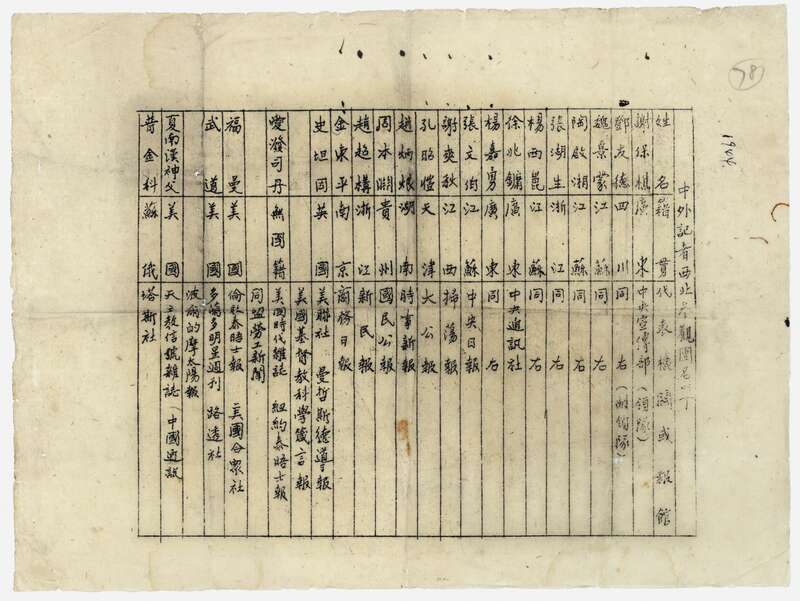 78
1944
中外記者西北參觀團名單
姓名 籍貫 代表機關或報館
謝保樵 廣東 中央宣傳部（領隊）
鄧友德 四川 同右（副領隊）
魏景蒙 江蘇 同右
陶啟湘 江蘇 同右
張湖生 浙江 同右
楊西崑 江蘇 同右
徐兆鏞 廣東 中央通訊社
楊嘉勇 廣東 同右
張文伯 江蘇 中央日報
謝爽秋 江西 掃蕩報
孔昭愷 天津 大公報
趙炳烺 湖南 時事新報
周本淵 貴州 國民公報
趙超構 浙江 新民報
金東平 南京 商務日報
史坦因 英國 美聯社 曼哲斯德導報
美國基督教科學箴言報
愛潑司丹 無國籍 美國時代雜誌 紐約泰晤士報
同盟勞工新聞
福曼 美國 倫敦泰晤士報 美國合眾社
武道 美國 多倫多明星週刊 路透社
波爾的摩太陽報
夏南漢神父 美國 天主教信號雜誌（中國通訊）
普金科 蘇俄 塔斯社